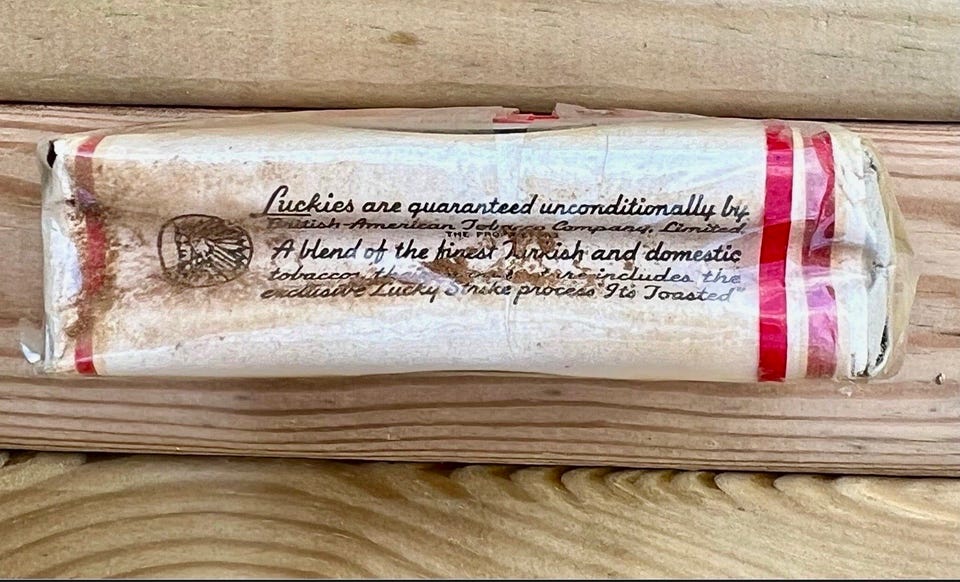 Luckies are guaranteed unconditionally by
British-American Tobacco Company, Limited
THE
A blend of the finest Turkish and domestic
tobaccos, includes the
exclusive Lucky Strike process "It's Toasted"